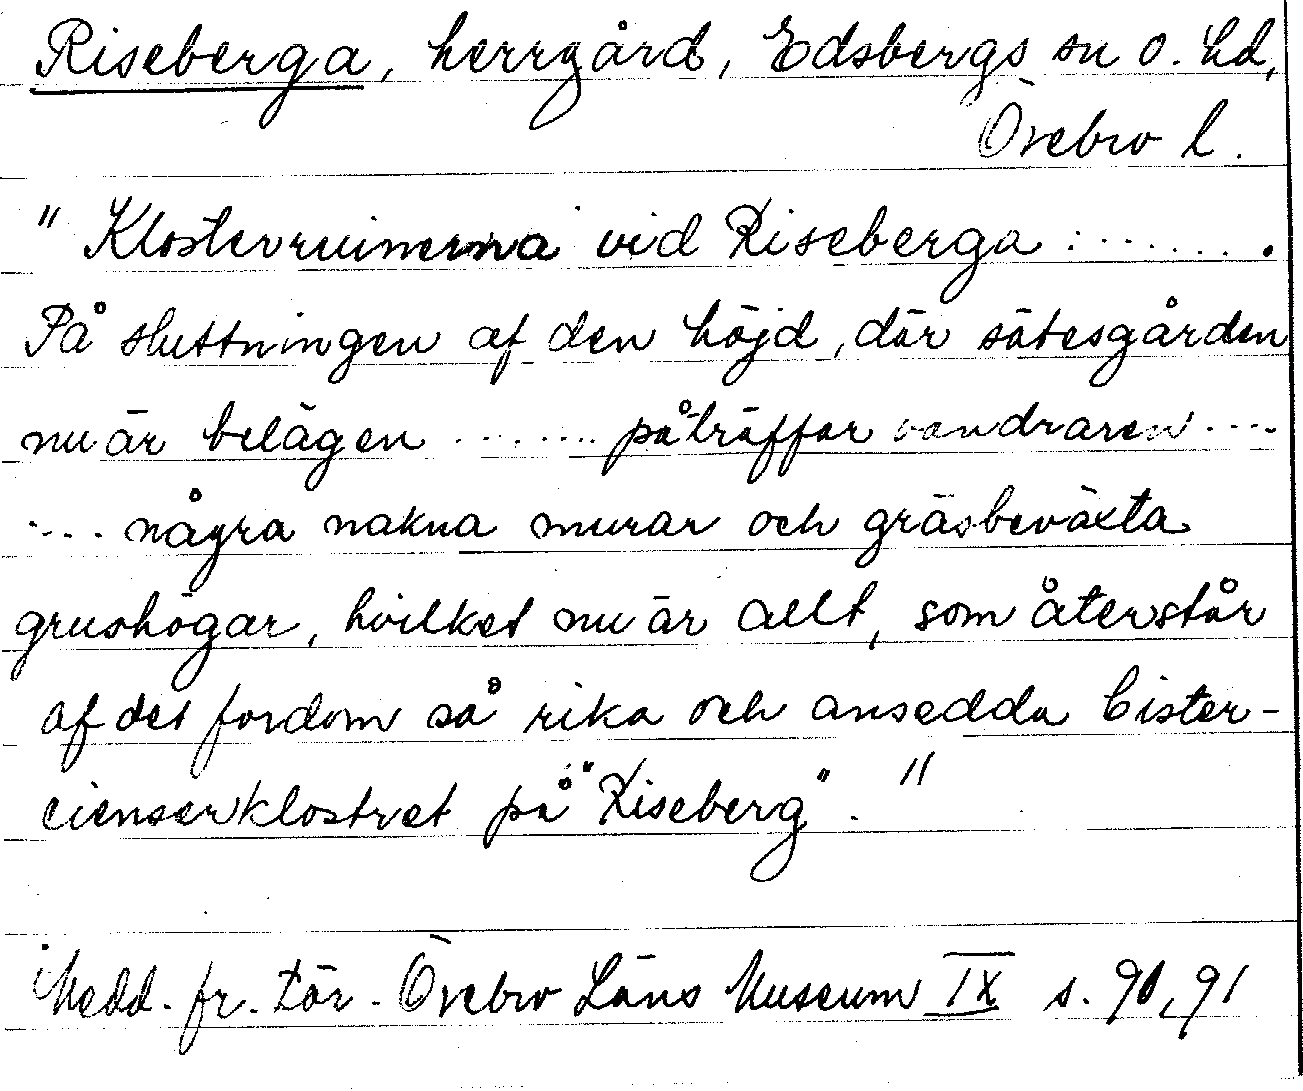 Riseberga, herrgård, Edsbergs sn o. hd,
Örebro l.
" Klosterruinerna vid Riseberga : ........
På sluttningen af den höjd, där sätesgården
nu är belägen ........ påträffar vandraren ....
.... några nakna murar och gräsbeväxta
grushögar, hvilket nu är allt, som återstår
af det fordom så rika och ansedda Cister-
cienserklostret på "Riseberg". "
Medd. fr. För. Örebro Läns Museum IX s. 90, 91